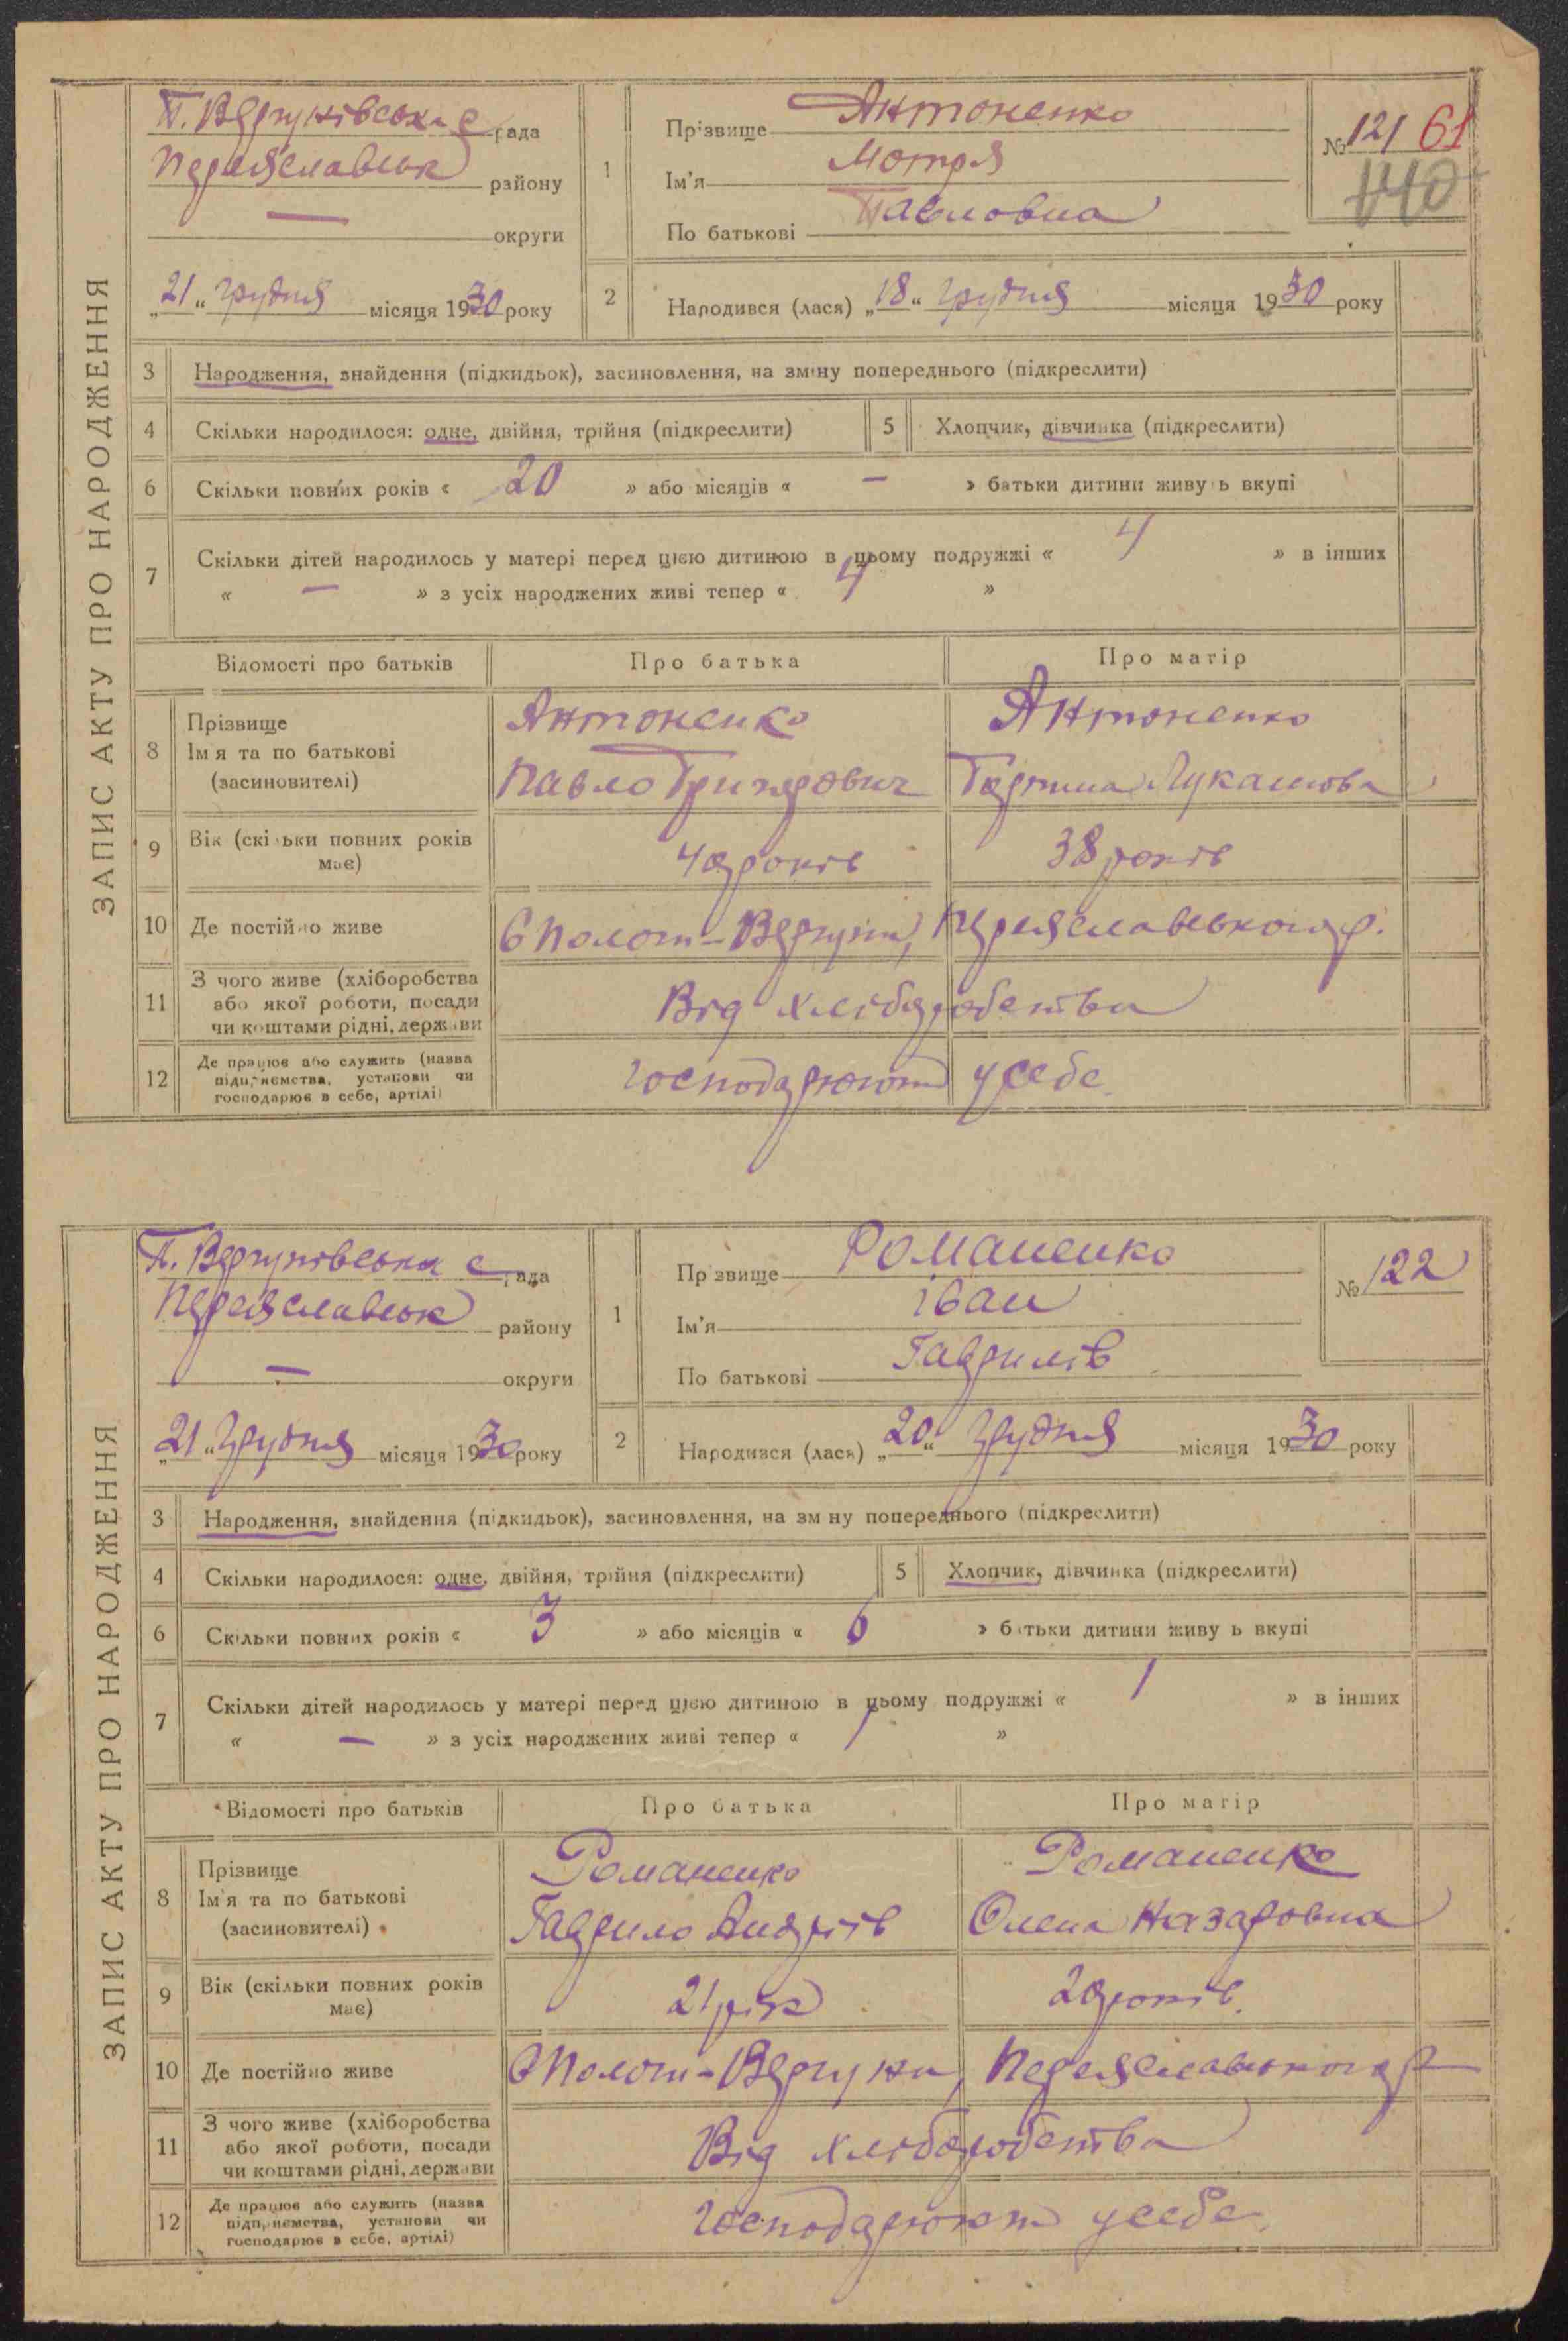 ЗАПИС АКТУ ПРО НАРОДЖЕННЯ
П. Вергунівська с рада
Переяславськ району
— округи
„21“ грудня місяця 1930 року
1
Прізвище Антоненко
Ім'я Мотря
По батькові Павловна
№ 121 61
140
2
Народився (лася) „18“ грудня місяця 1930 року
3 Народження, знайдення (підкидьок), засиновлення, на зміну попереднього (підкреслити)
4 Скільки народилося: одне, двійня, трійня (підкреслити) 5 Хлопчик, дівчинка (підкреслити)
6 Скільки повних років « 20 » або місяців « — » батьки дитини живуть вкупі
7 Скільки дітей народилось у матері перед цією дитиною в цьому подружжі « 4 » в інших
« — » з усіх народжених живі тепер « 4 »
Відомості про батьків Про батька Про матір
8 Прізвище Антоненко Антоненко
Ім'я та по батькові Павло Григорович Лукашова
(засиновителі)
9 Вік (скільки повних років має) 40 років 38 років
10 Де постійно живе С Полот-Вергуни, Переяславського р.
11 З чого живе (хліборобства
або якої роботи, посади Від хліборобства
чи коштами рідні, держави
12 Де працює або служить (назва
підприємства, установи чи господарюют у себе
господарює в себе, артілі)
ЗАПИС АКТУ ПРО НАРОДЖЕННЯ
П. Вергунівська с рада
Переяславськ району
— округи
„21“ грудня місяця 1930 року
1
Прізвище Романенко
Ім'я іван
По батькові Гаврилів
№ 122
2
Народився (лася) „20“ грудня місяця 1930 року
3 Народження, знайдення (підкидьок), засиновлення, на зміну попереднього (підкреслити)
4 Скільки народилося: одне, двійня, трійня (підкреслити) 5 Хлопчик, дівчинка (підкреслити)
6 Скільки повних років « 3 » або місяців « 6 » батьки дитини живуть вкупі
7 Скільки дітей народилось у матері перед цією дитиною в цьому подружжі « 1 » в інших
« — » з усіх народжених живі тепер « 1 »
Відомості про батьків Про батька Про матір
8 Прізвище Романенко Романенко
Ім'я та по батькові Гаврило Андріїв Олена Назаровна
(засиновителі)
9 Вік (скільки повних років має) 21 рік 20 років.
10 Де постійно живе С Полот-Вергуни, Переяславського р
11 З чого живе (хліборобства
або якої роботи, посади Від хліборобства
чи коштами рідні, держави
12 Де працює або служить (назва
підприємства, установи чи господарюют у себе
господарює в себе, артілі)